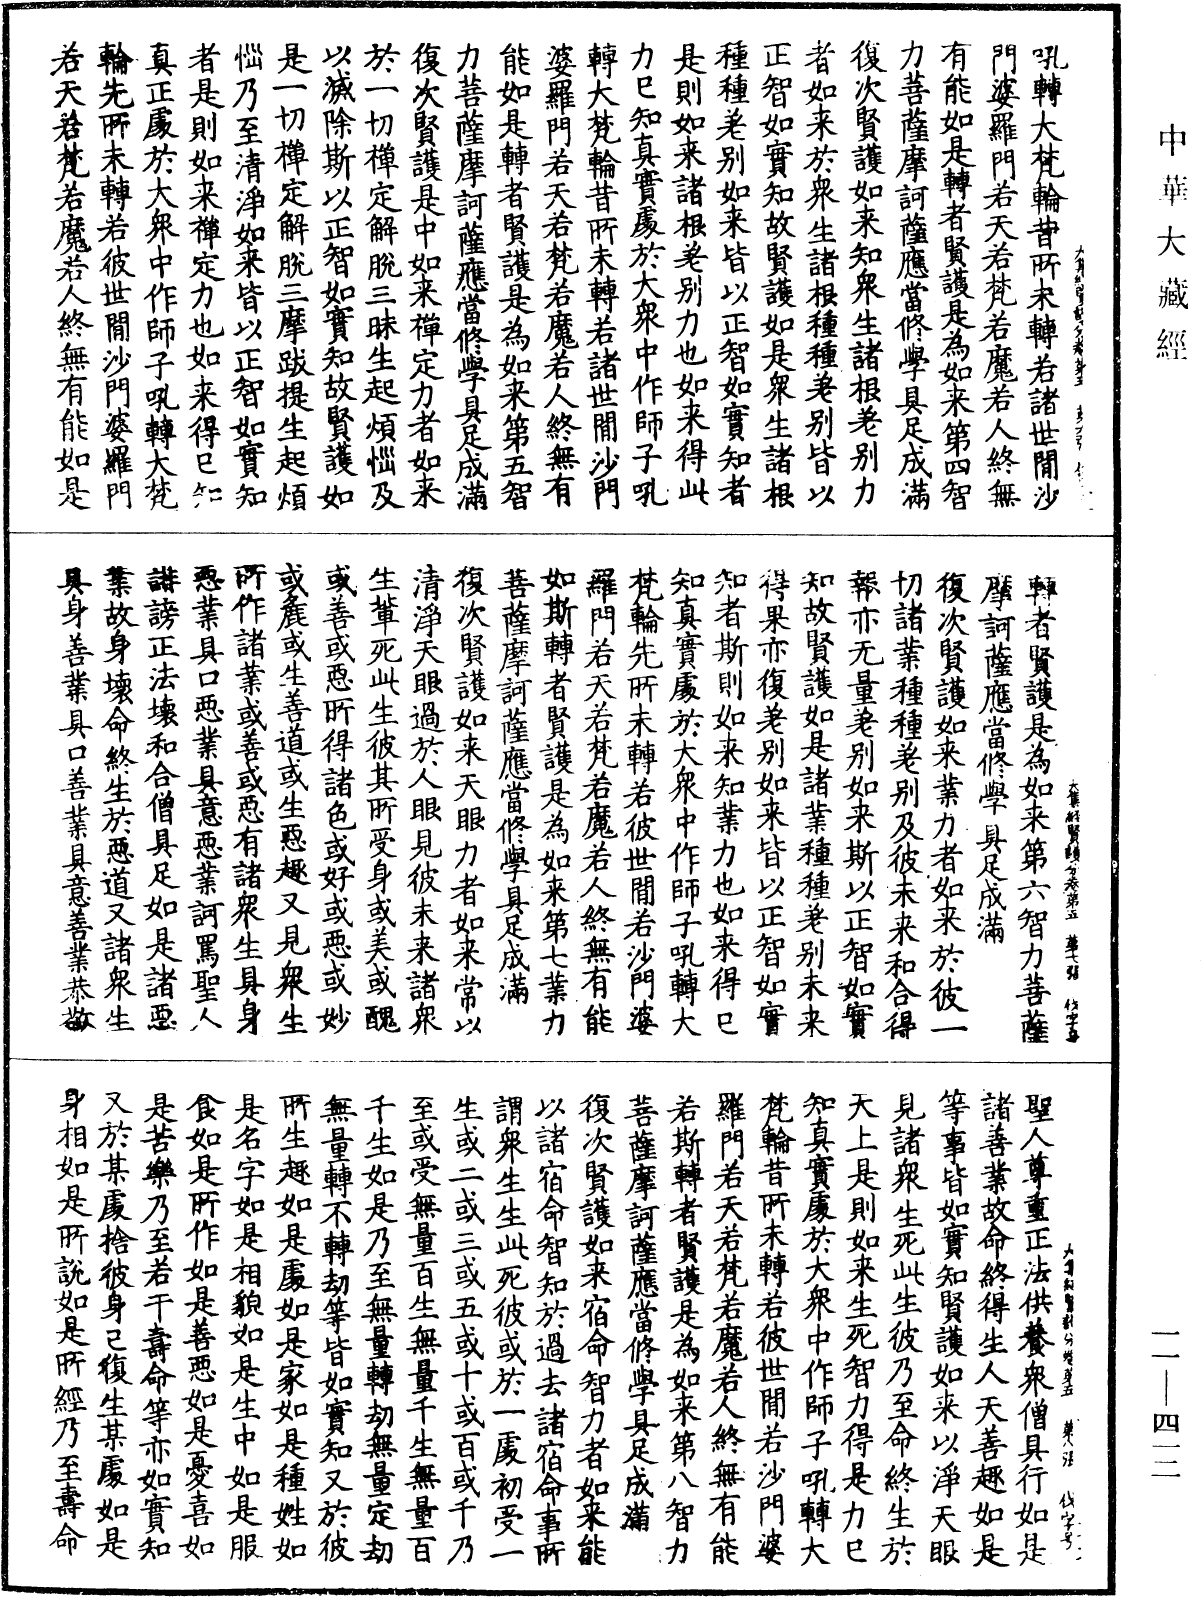 中華大藏經
吼轉大梵輪昔所未轉若諸世間沙
門婆羅門若天若梵若魔若人終無
有能如是轉者賢護是為如来第四智
力菩薩摩訶薩應當修學具足成滿
復次賢護如来知衆生諸根差别力
者如来於衆生諸根種種差别皆以
正智如實知故賢護如是衆生諸根
種種差别如来皆以正智如實知者
是則如来諸根差别力也如来得此
力已知真實處於大衆中作師子吼
轉大梵輪昔所未轉若諸世間沙門
婆羅門若天若梵若魔若人終無有
能如是轉者賢護是為如来第五智
力菩薩摩訶薩應當修學具足成滿
復次賢護是中如来禪定力者如来
於一切禪定解脱三昧生起煩惱及
以滅除斯以正智如實知故賢護如
是一切禪定解脱三摩跋提生起煩
惱乃至清淨如来皆以正智如實知
者是則如来禪定力也如来得已知
真正處於大衆中作師子吼轉大梵
輪先所未轉若彼世間沙門婆羅門
若天若梵若魔若人終無有能如是
大集經賢護分卷第五 第七張 伐字号
轉者賢護是為如来第六智力菩薩
摩訶薩應當修學具足成滿
復次賢護如来業力者如来於彼一
切諸業種種差别及彼未来和合得
報亦无量差别如来斯以正智如實
知故賢護如是諸業種種差别未来
得果亦復差别如来皆以正智如實
知者斯則如来知業力也如来得已
知真實處於大衆中作師子吼轉大
梵輪先所未轉若彼世間若沙門婆
羅門若天若梵若魔若人終無有能
如斯轉者賢護是為如来第七業力
菩薩摩訶薩應當修學具足成滿
復次賢護如来天眼力者如来常以
清淨天眼過於人眼見彼未来諸衆
生輩死此生彼其所受身或美或醜
或善或惡所得諸色或好或惡或妙
或麁或生善道或生惡趣又見衆生
所作諸業或善或惡有諸衆生具身
惡業具口惡業具意惡業訶罵聖人
誹謗正法壞和合僧具足如是諸惡
業故身壞命終生於惡道又諸衆生
具身善業具口善業具意善業恭敬
大集經賢護分卷第五 第八張 伐字号
聖人尊重正法供養衆僧具行如是
諸善業故命終得生人天善趣如是
等事皆如實知賢護如来以淨天眼
見諸衆生死此生彼乃至命終生於
天上是則如来生死智力得是力已
知真實處於大衆中作師子吼轉大
梵輪昔所未轉若彼世間若沙門婆
羅門若天若梵若魔若人終無有能
若斯轉者賢護是為如来第八智力
菩薩摩訶薩應當修學具足成滿
復次賢護如来宿命智力者如来能
以諸宿命智知於過去諸宿命事所
謂衆生生此死彼或於一處初受一
生或二或三或五或十或百或千乃
至或受無量百生無量千生無量百
千生如是乃至無量轉劫無量定劫
無量轉不轉劫等皆如實知又於彼
所生趣如是處如是家如是種姓如
是名字如是相貌如是生中如是服
食如是所作如是善惡如是憂喜如
是苦樂乃至若干壽命等亦如實知
又於某處捨彼身已復生某處如是
身相如是所說如是所經乃至壽命
一一—四一二